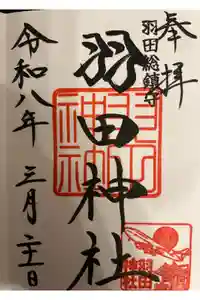 奉拝
羽田総鎮守
羽田神社
令和八年三月二十一日
羽田神社